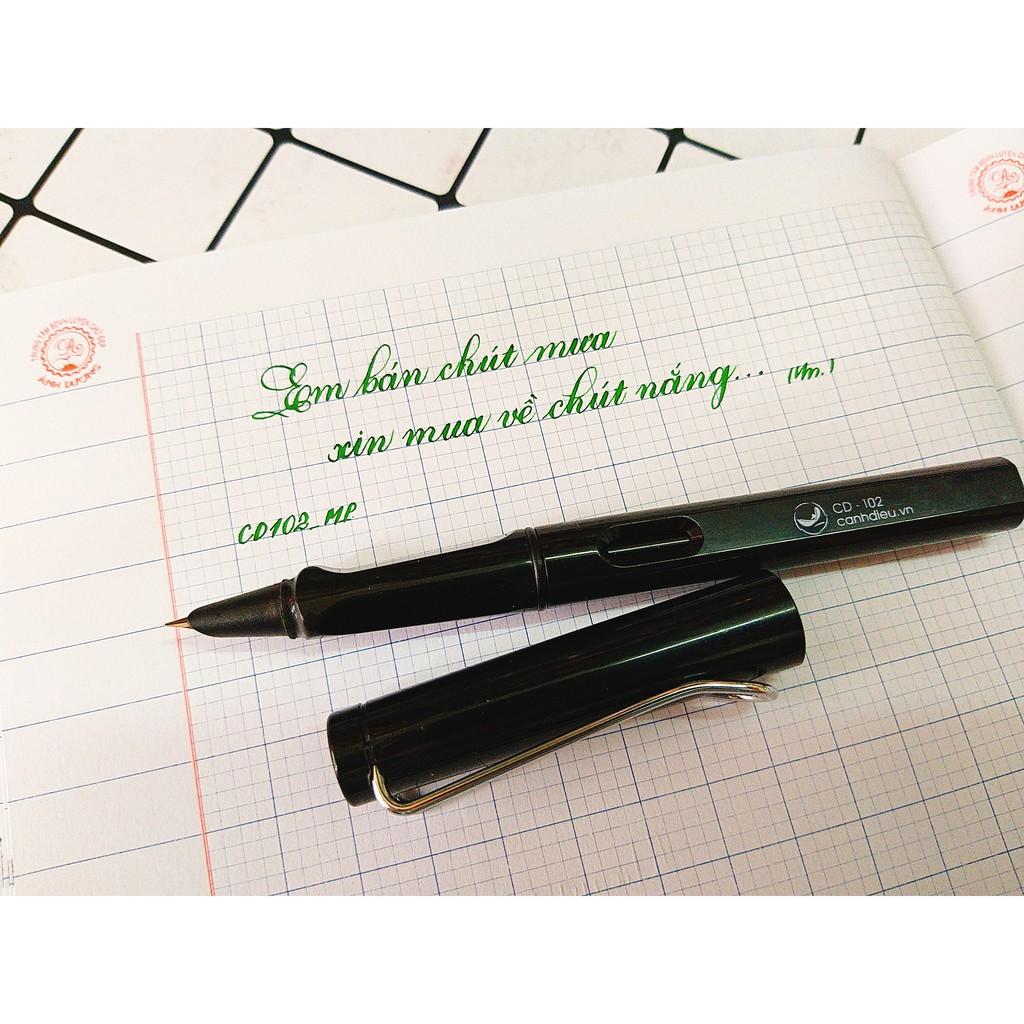 TRUNG TÂM BDVH LUYỆN CHỮ ĐẸP
ÁNH DƯƠNG
Em bán chút mưa
xin mua về chút nắng...
CD102_MP
CD - 102
canhdieu.vn